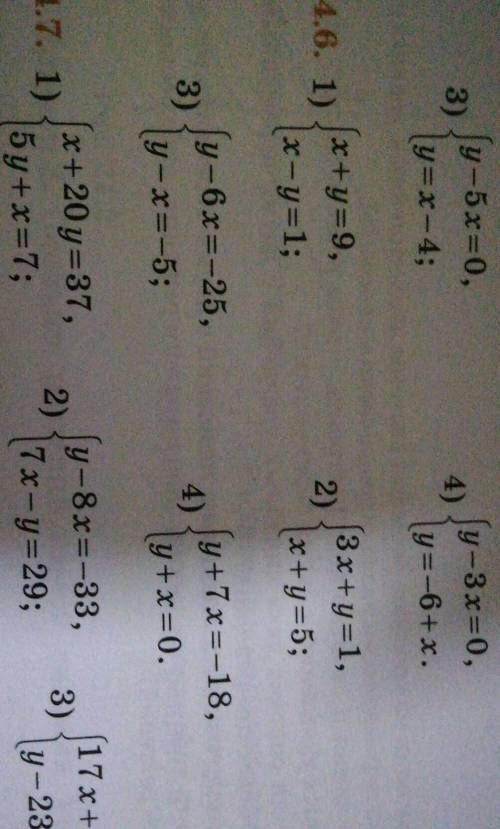 3) { y − 5x = 0,
y = x − 4;
4) { y − 3x = 0,
y = −6 + x.
4.6. 1) { x + y = 9,
x − y = 1;
2) { 3x + y = 1,
x + y = 5;
3) { y − 6x = −25,
y − x = −5;
4) { y + 7x = −18,
y + x = 0.
.7. 1) { x + 20y = 37,
5y + x = 7;
2) { y − 8x = −33,
7x − y = 29;
3) { 17x +
y − 23